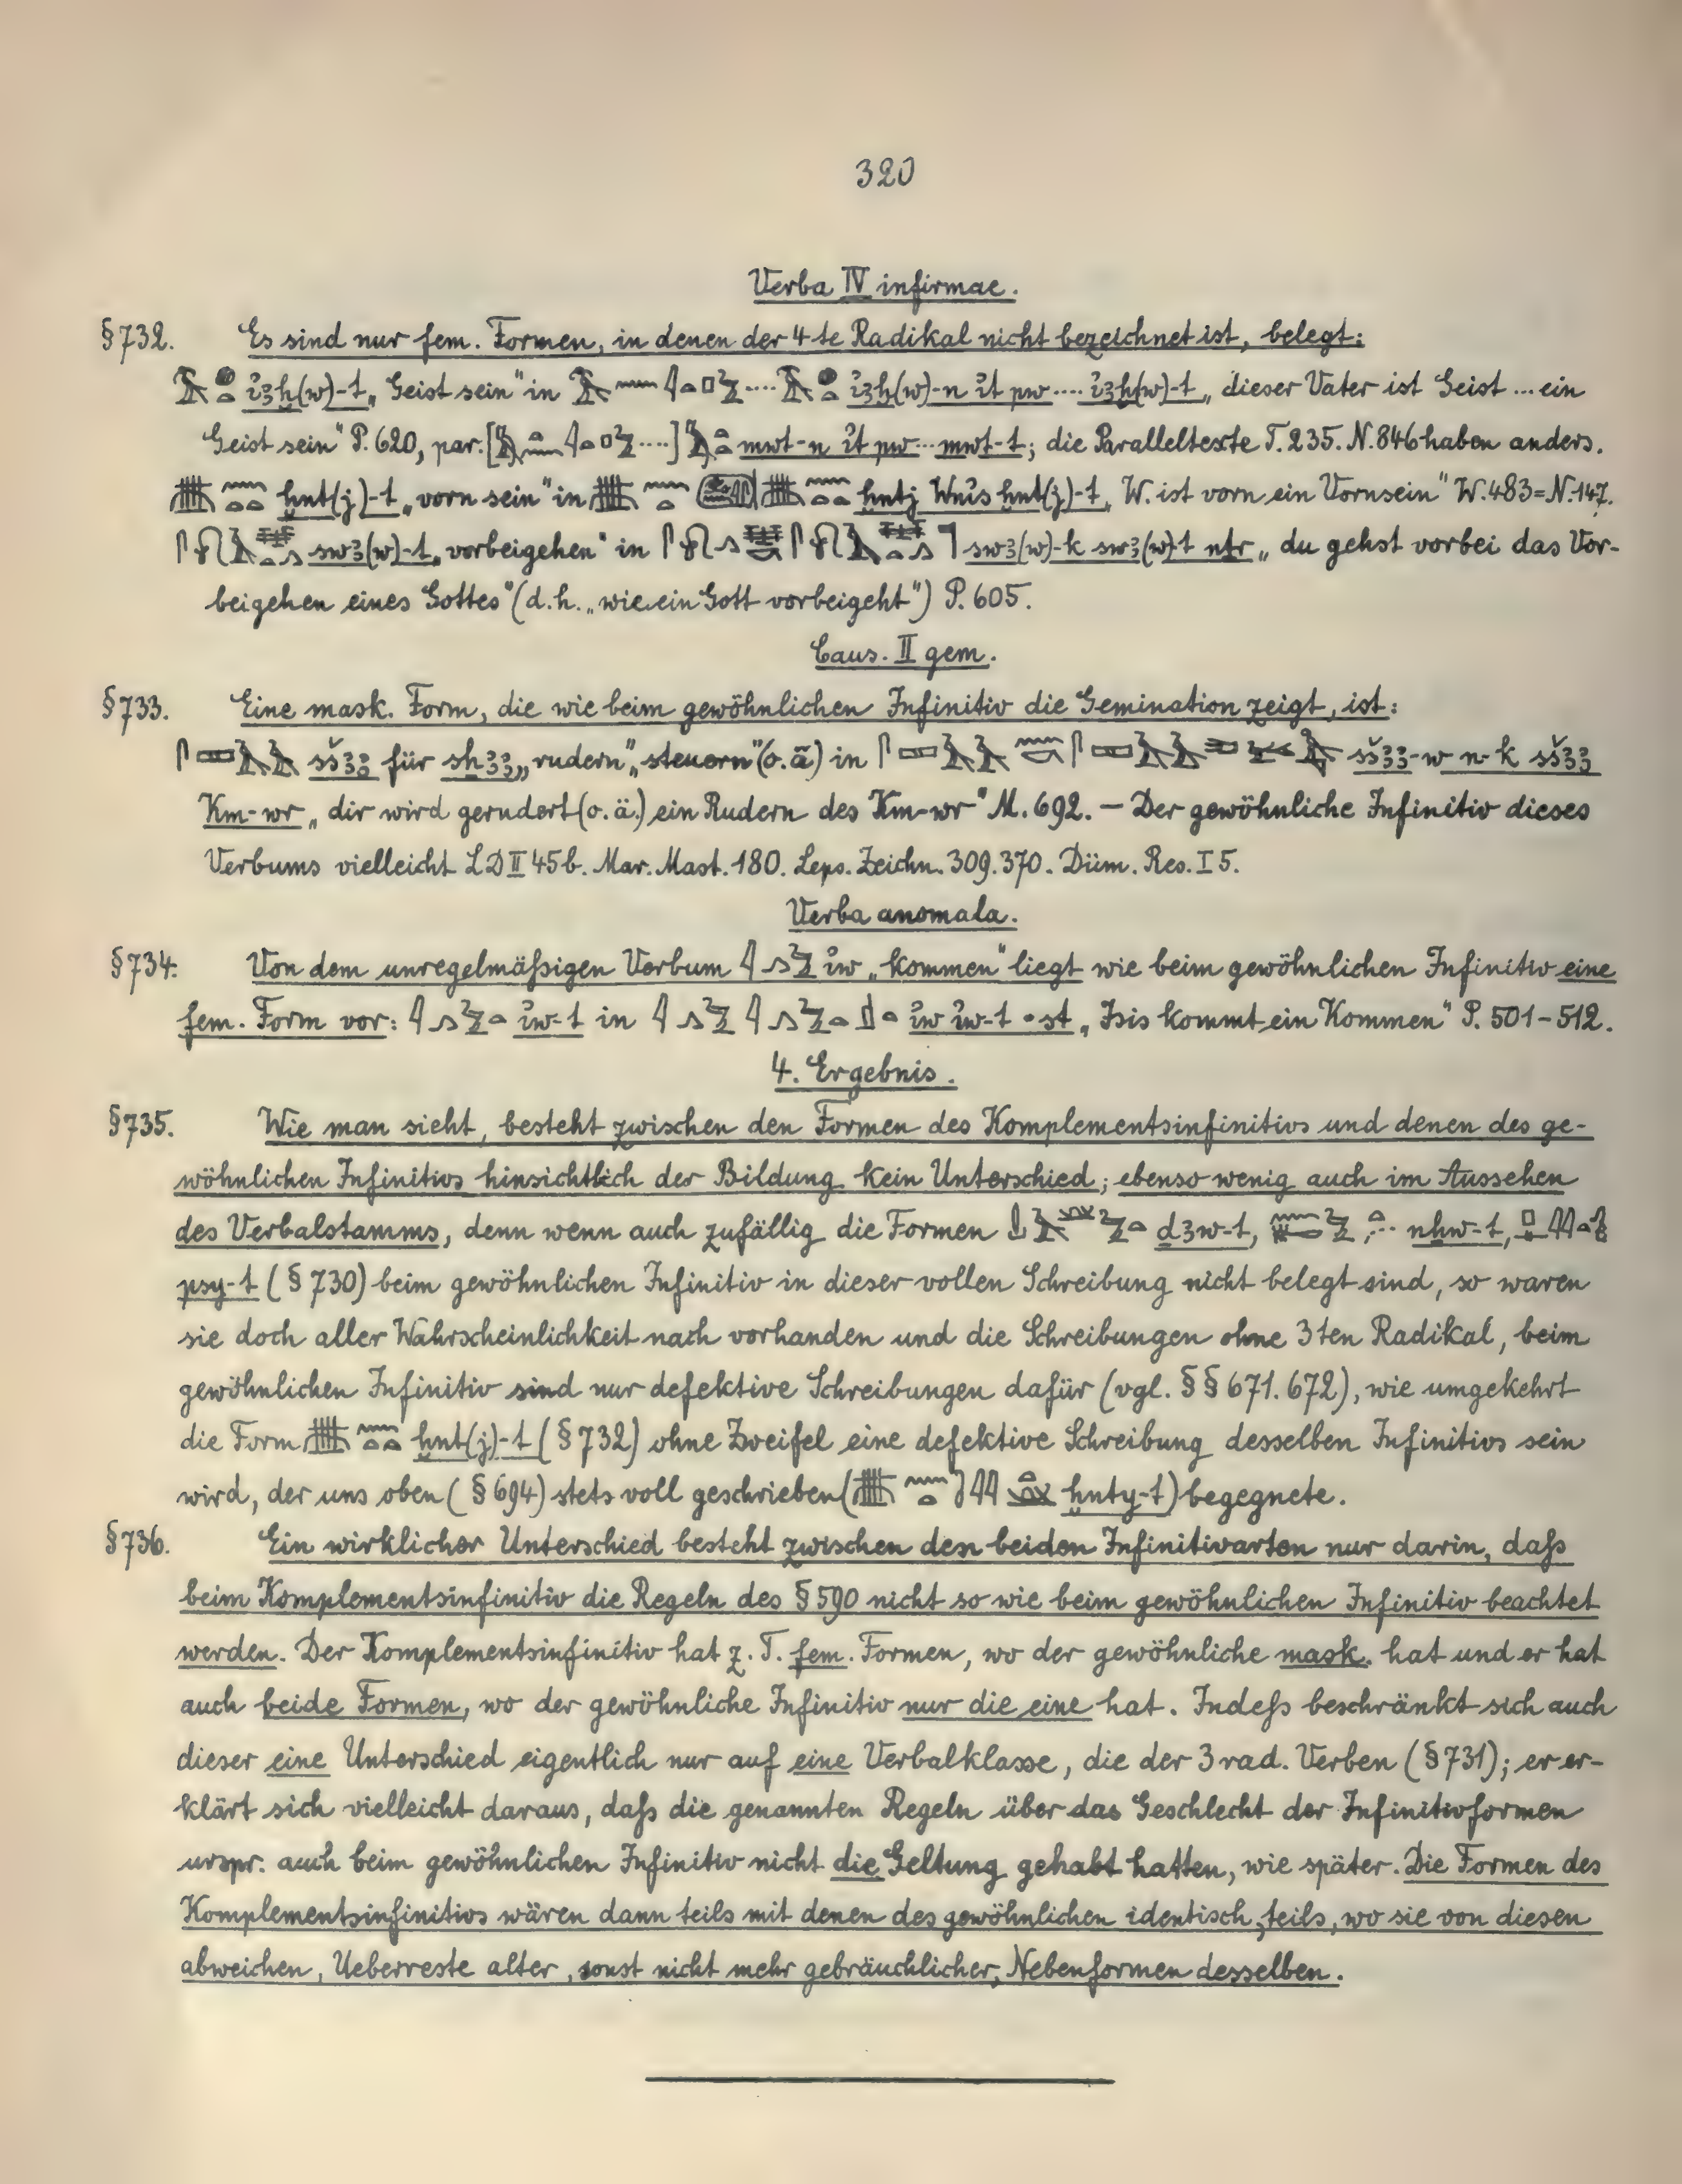 320
Verba IV infirmae.
§732. Es sind nur fem. Formen, in denen der 4te Radikal nicht bezeichnet ist, belegt:
ı͗ꜣḫ(w)-t „Geist sein“ in ı͗ꜣḫ(w)-n ı͗t pw .... ı͗ꜣḫ(w)-t „dieser Vater ist Geist ... ein
Geist sein“ P. 620, par. [....] mwt-n ı͗t pw ... mwt-t; die Paralleltexte T. 235. N. 846 haben anders.
ḫnt(j)-t „vorn sein“ in ḫntj Wnı͗s ḫnt(j)-t „W. ist vorn ein Vornsein“ W. 483 = N. 147.
swꜣ(w)-t „vorbeigehen“ in swꜣ(w)-k swꜣ(w)-t nṯr „du gehst vorbei das Vor-
beigehen eines Gottes“ (d. h. „wie ein Gott vorbeigeht“) P. 605.
Caus. II gem.
§733. Eine mask. Form, die wie beim gewöhnlichen Infinitiv die Gemination zeigt, ist:
sšꜣꜣ für sẖꜣꜣ „rudern“ „steuern“ (o. ä) in sšꜣꜣ-w n-k sšꜣꜣ
Km-wr „dir wird gerudert (o. ä.) ein Rudern des Km-wr“ M. 692. – Der gewöhnliche Infinitiv dieses
Verbums vielleicht LD II 45b. Mar. Mast. 180. Leps. Zeichn. 309. 370. Düm. Res. I 5.
Verba anomala.
§734. Von dem unregelmäßigen Verbum ı͗w „kommen“ liegt wie beim gewöhnlichen Infinitiv eine
fem. Form vor: ı͗w-t in ı͗w ı͗w-t •st „Isis kommt ein Kommen“ P. 501–512.
4. Ergebnis.
§735. Wie man sieht, besteht zwischen den Formen des Komplementsinfinitivs und denen des ge-
wöhnlichen Infinitivs hinsichtlich der Bildung kein Unterschied; ebenso wenig auch im Aussehen
des Verbalstamms, denn wenn auch zufällig die Formen dꜣw-t, nhw-t,
psy-t (§730) beim gewöhnlichen Infinitiv in dieser vollen Schreibung nicht belegt sind, so waren
sie doch aller Wahrscheinlichkeit nach vorhanden und die Schreibungen ohne 3ten Radikal, beim
gewöhnlichen Infinitiv sind nur defektive Schreibungen dafür (vgl. §§ 671. 672), wie umgekehrt
die Form ḫnt(j)-t (§732) ohne Zweifel eine defektive Schreibung desselben Infinitivs sein
wird, der uns oben (§694) stets voll geschrieben (ḫnty-t) begegnete.
§736. Ein wirklicher Unterschied besteht zwischen den beiden Infinitivarten nur darin, daß
beim Komplementsinfinitiv die Regeln des §590 nicht so wie beim gewöhnlichen Infinitiv beachtet
werden. Der Komplementsinfinitiv hat z. T. fem. Formen, wo der gewöhnliche mask. hat und er hat
auch beide Formen, wo der gewöhnliche Infinitiv nur die eine hat. Indeß beschränkt sich auch
dieser eine Unterschied eigentlich nur auf eine Verbalklasse, die der 3rad. Verben (§731); er er-
klärt sich vielleicht daraus, daß die genannten Regeln über das Geschlecht der Infinitivformen
urspr. auch beim gewöhnlichen Infinitiv nicht die Geltung gehabt hatten, wie später. Die Formen des
Komplementsinfinitivs wären dann teils mit denen des gewöhnlichen identisch, teils, wo sie von diesen
abweichen, Ueberreste alter, sonst nicht mehr gebräuchlicher, Nebenformen desselben.